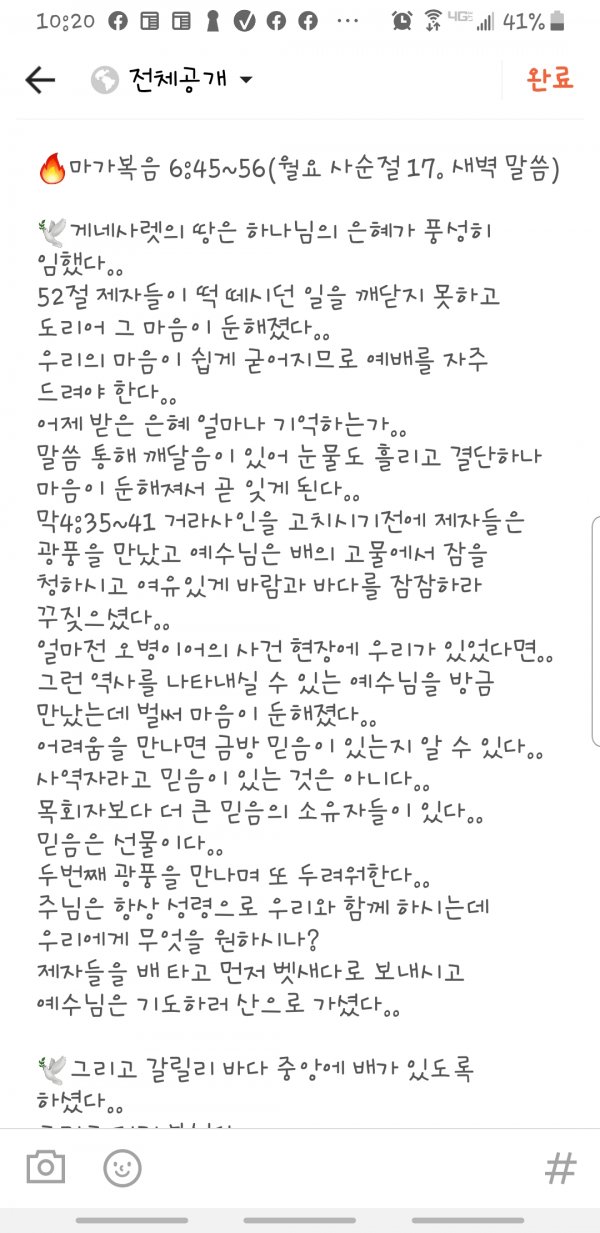 10:20 … 4GE 41%
전체공개
완료
마가복음 6:45~56(월요 사순절 17. 새벽 말씀)
게네사렛의 땅은 하나님의 은혜가 풍성히
임했다..
52절 제자들이 떡 떼시던 일을 깨닫지 못하고
도리어 그 마음이 둔해졌다..
우리의 마음이 쉽게 굳어지므로 예배를 자주
드려야 한다..
어제 받은 은혜 얼마나 기억하는가..
말씀 통해 깨달음이 있어 눈물도 흘리고 결단하나
마음이 둔해져서 곧 잊게 된다..
막4:35~41 거라사인을 고치시기전에 제자들은
광풍을 만났고 예수님은 배의 고물에서 잠을
청하시고 여유있게 바람과 바다를 잠잠하라
꾸짖으셨다..
얼마전 오병이어의 사건 현장에 우리가 있었다면..
그런 역사를 나타내실 수 있는 예수님을 방금
만났는데 벌써 마음이 둔해졌다..
어려움을 만나면 금방 믿음이 있는지 알 수 있다..
사역자라고 믿음이 있는 것은 아니다..
목회자보다 더 큰 믿음의 소유자들이 있다..
믿음은 선물이다..
두번째 광풍을 만나며 또 두려워한다..
주님은 항상 성령으로 우리와 함께 하시는데
우리에게 무엇을 원하시나?
제자들을 배 타고 먼저 벳새다로 보내시고
예수님은 기도하러 산으로 가셨다..
그리고 갈릴리 바다 중앙에 배가 있도록
하셨다..
#